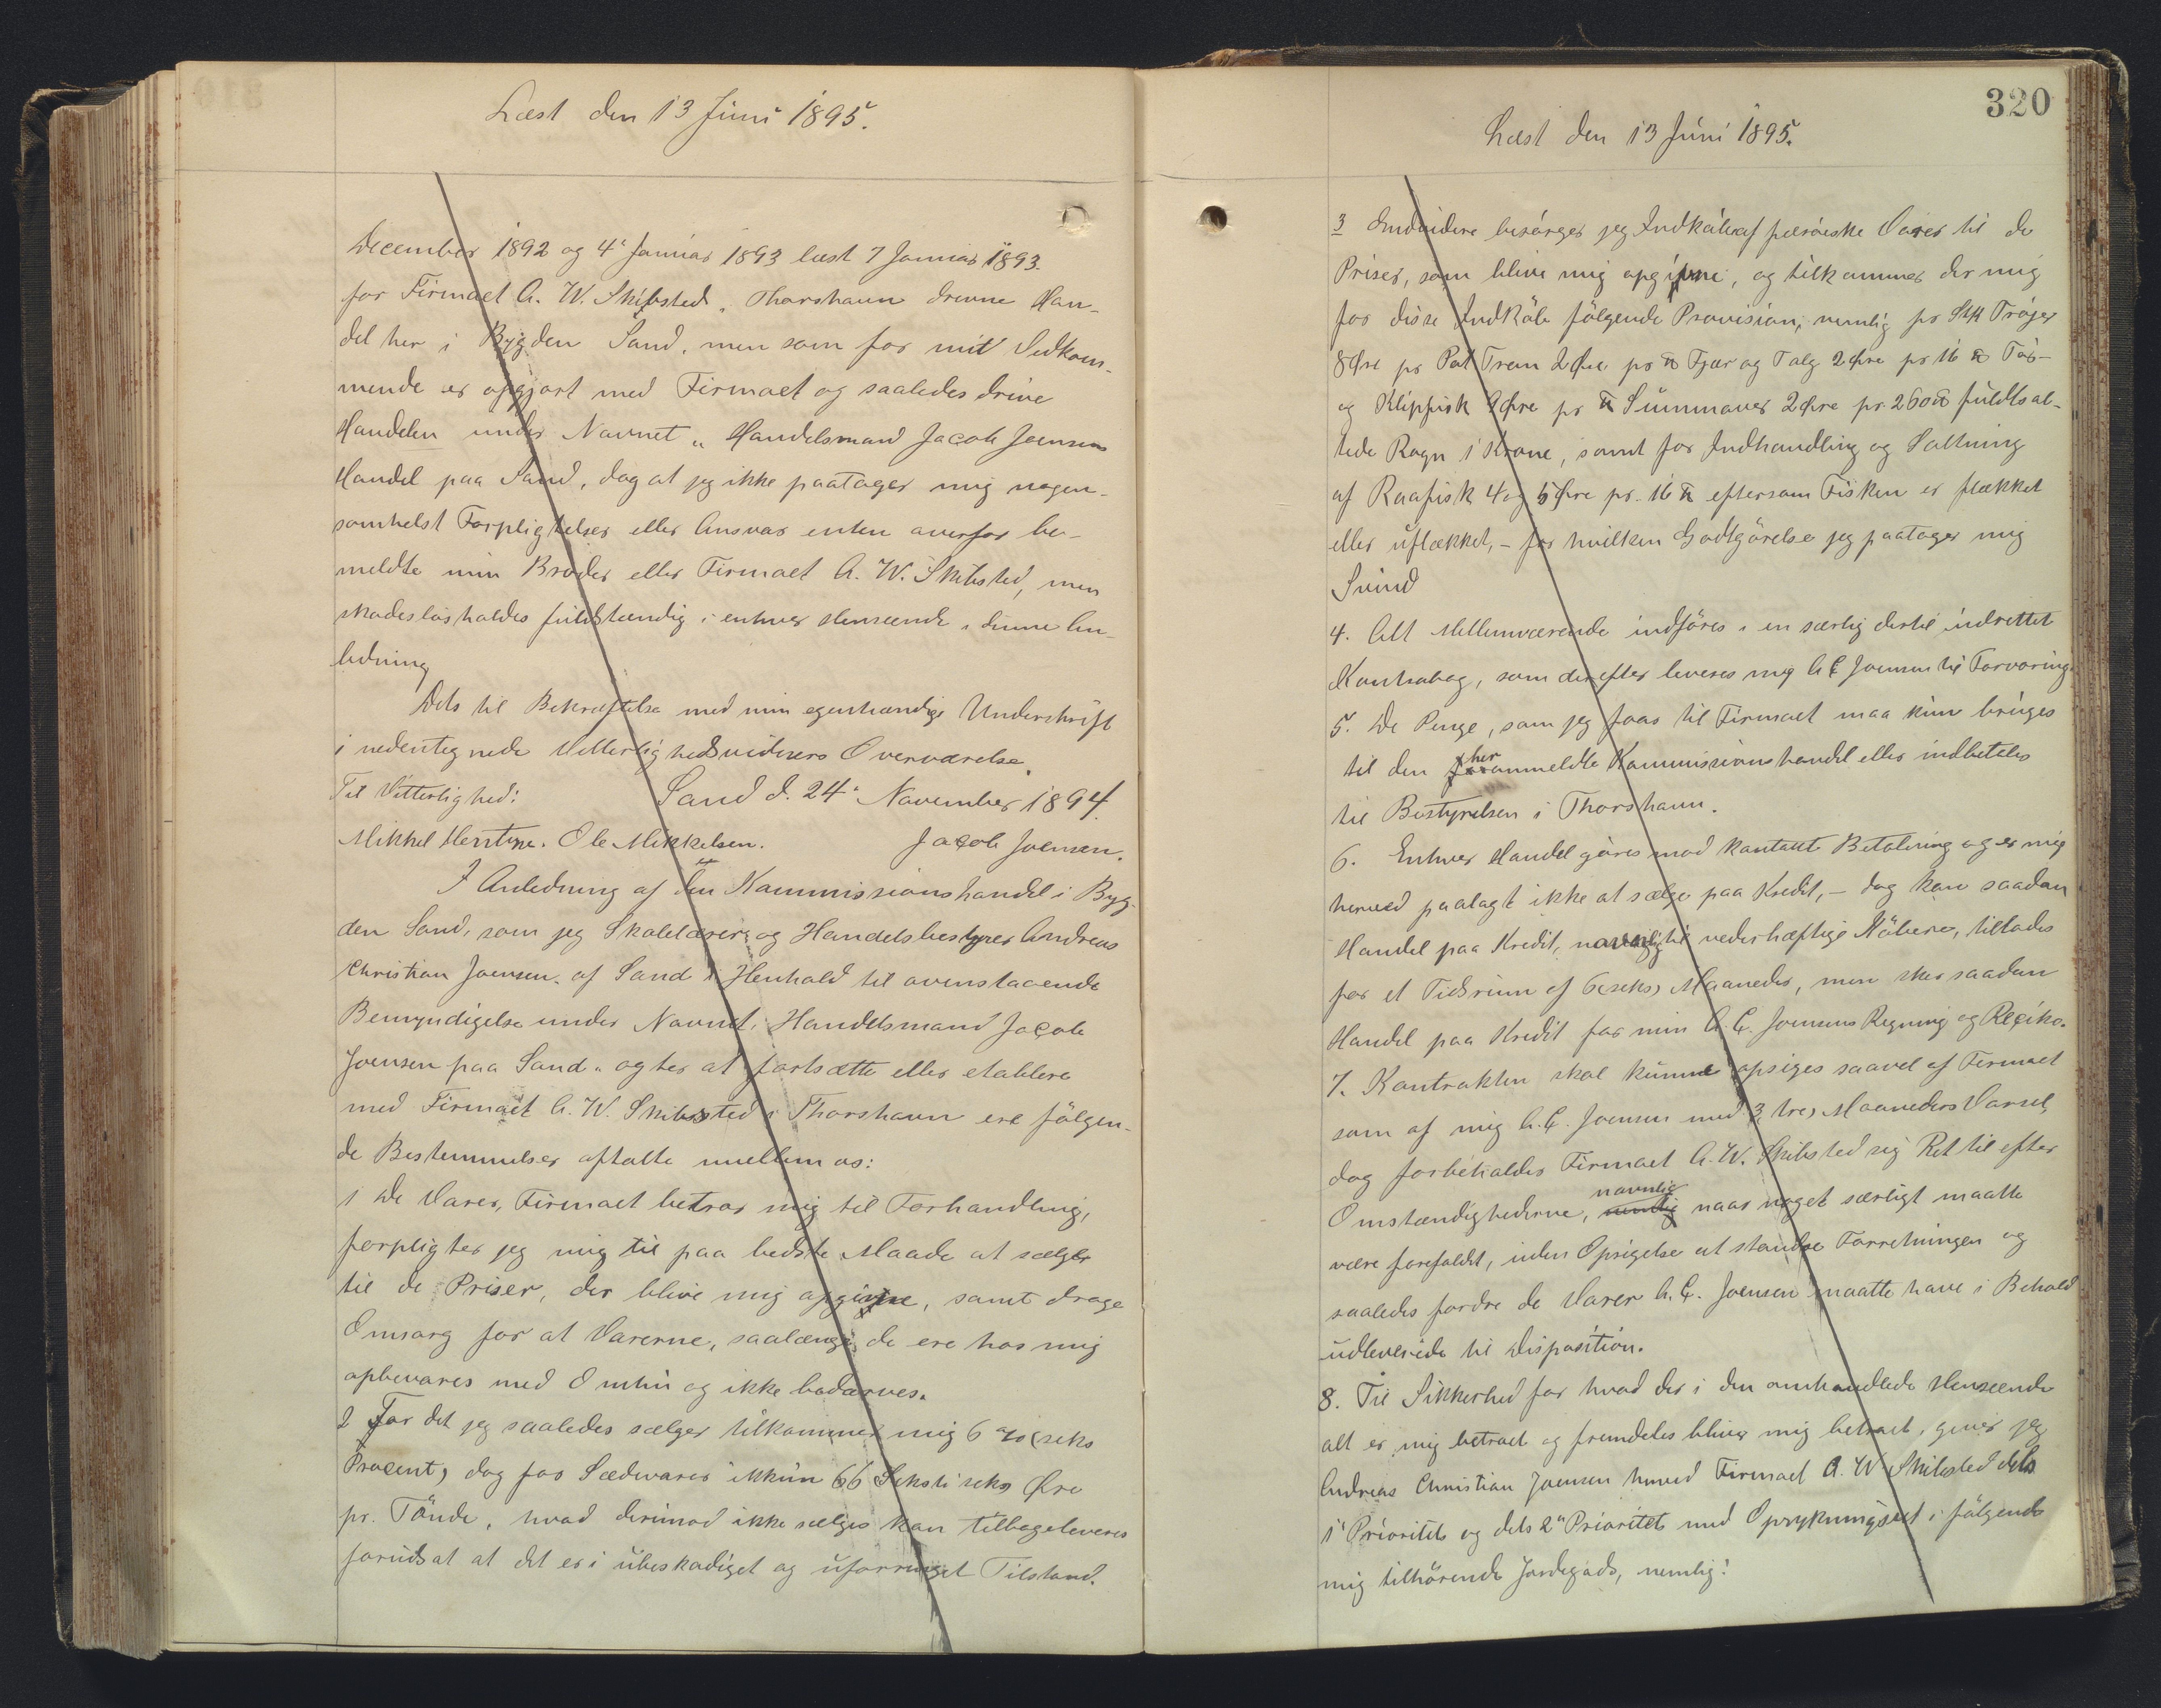 Læst den 13 Juni 1895.
December 1892 og 4' Januar 1893 læst 7 Januar 1893.
for Firmaet A. W. Skibsted, Thorshavn drevne Han-
del her i Bygden Sand, men som for mit Vedkom-
mende er opgjort med Firmaet og saaledes drive
Handelen under Navnet „Handelsmand Jacob Joensens
Handel paa Sand, dog at jeg ikke paatager mig nogen-
somhelst Forpligtelser eller Ansvar enten overfor be-
meldte min Broder eller Firmaet A. W. Skibsted, men
skadesløsholdes fuldstændig i enhver Henseende i denne An-
ledning
Dets til Bekræftelse med min egenhændige Underskrift
i nedentegnede Vitterlighedsvidners Overværelse.
Til Vitterlighed: Sand d. 24' November 1894.
Mikkel Hentze. Ole Mikkelsen. Jacob Joensen.
I Anledning af den Kommissionshandel i Byg-
den Sand, som jeg Skolelærer og Handelsbestyrer Andreas
Christian Joensen af Sand i Henhold til ovenstaaende
Bemyndigelse under Navnet „Handelsmand Jacob
Joensen paa Sand„ agter at fortsætte eller etablere
med Firmaet A. W. Skibsted i Thorshavn ere følgen-
de Bestemmelser aftalte mellem os:
1 De Varer, Firmaet betror mig til Forhandling,
forpligter jeg mig til paa bedste Maade at sælge
til de Priser, der blive mig opgivne, samt drage
Omsorg for at Varerne, saalænge de ere hos mig
opbevares med Omhu og ikke bedærves.
2 For det jeg saaledes sælger tilkommer mig 6 % (seks
Procent) dog for Sædvarer ikkun 66 (Sekstiseks) Øre
pr. Tønde, hvad derimod ikke sælges kan tilbageleveres
forudsat at det er i ubeskadiget og uforringet Tilstand.
320
Læst den 13 Juni 1895.
3 Endvidere besørger jeg Indkøb af færøiske Varer til de
Priser, som blive mig opgivne, og tilkommer der mig
for disse Indkøb følgende Provision, nemlig pr Stk Trøjer
8 Øre pr Pot Tran 2 Øre pr ℔ Fjær og Talg 2 Øre pr 16 ℔ Tør-
og Klipfisk 2 Øre pr ℔ Summaver 2 Øre pr. 260 ℔ fuldtsal-
tede Rogn 1 Krone, samt for Indhandling og Saltning
af Raafisk 4 og 5 Øre pr. 16 ℔ eftersom Fisken er flækket
eller uflækket, – for hvilken Godtgørelse jeg paatager mig
Svind
4. Alt Mellemværende indføres i en særlig dertil indrettet
Kontrabog, som derefter leveres mig A C Joensen til Forvaring.
5. De Penge, som jeg faar til Firmaet maa kun bruges
her
til den foranmeldte Kommissionshandel eller indbetales
til Bestyrelsen i Thorshavn.
6. Enhver Handel gøres mod kontant Betaling og er mig
herved paalagt ikke at sælge paa Kredit, – dog kan saadan
Handel paa Kredit, navnlig til vederhæftige Købere, tillades
for et Tidsrum af 6 (seks) Maaneder, men sker saadan
Handel paa Kredit for min A. C. Joensens Regning og Reçiko.
7. Kontrakten skal kunne opsiges saavel af Firmaet
som af mig A. C. Joensen med 3 (tre) Maaneders Varsel,
dog forbeholder Firmaet A. W. Skibsted sig Ret til efter
navnlig
Omstændighederne, nemlig naar noget særligt maatte
være forefaldet, uden Opsigelse at standse Forretningen og
saaledes fordre de Varer A. C. Joensen maatte have i Behold
udleverede til Disposition.
8. Til Sikkerhed for hvad der i den omhandlede Henseende
alt er mig betroet og fremdeles bliver mig betroet, giver jeg
Andreas Christian Joensen herved Firmaet A. W. Skibsted dels
1' Prioritet og dels 2' Prioritet med Oprykningsret i følgende
mig tilhørende Jordegods, nemlig: